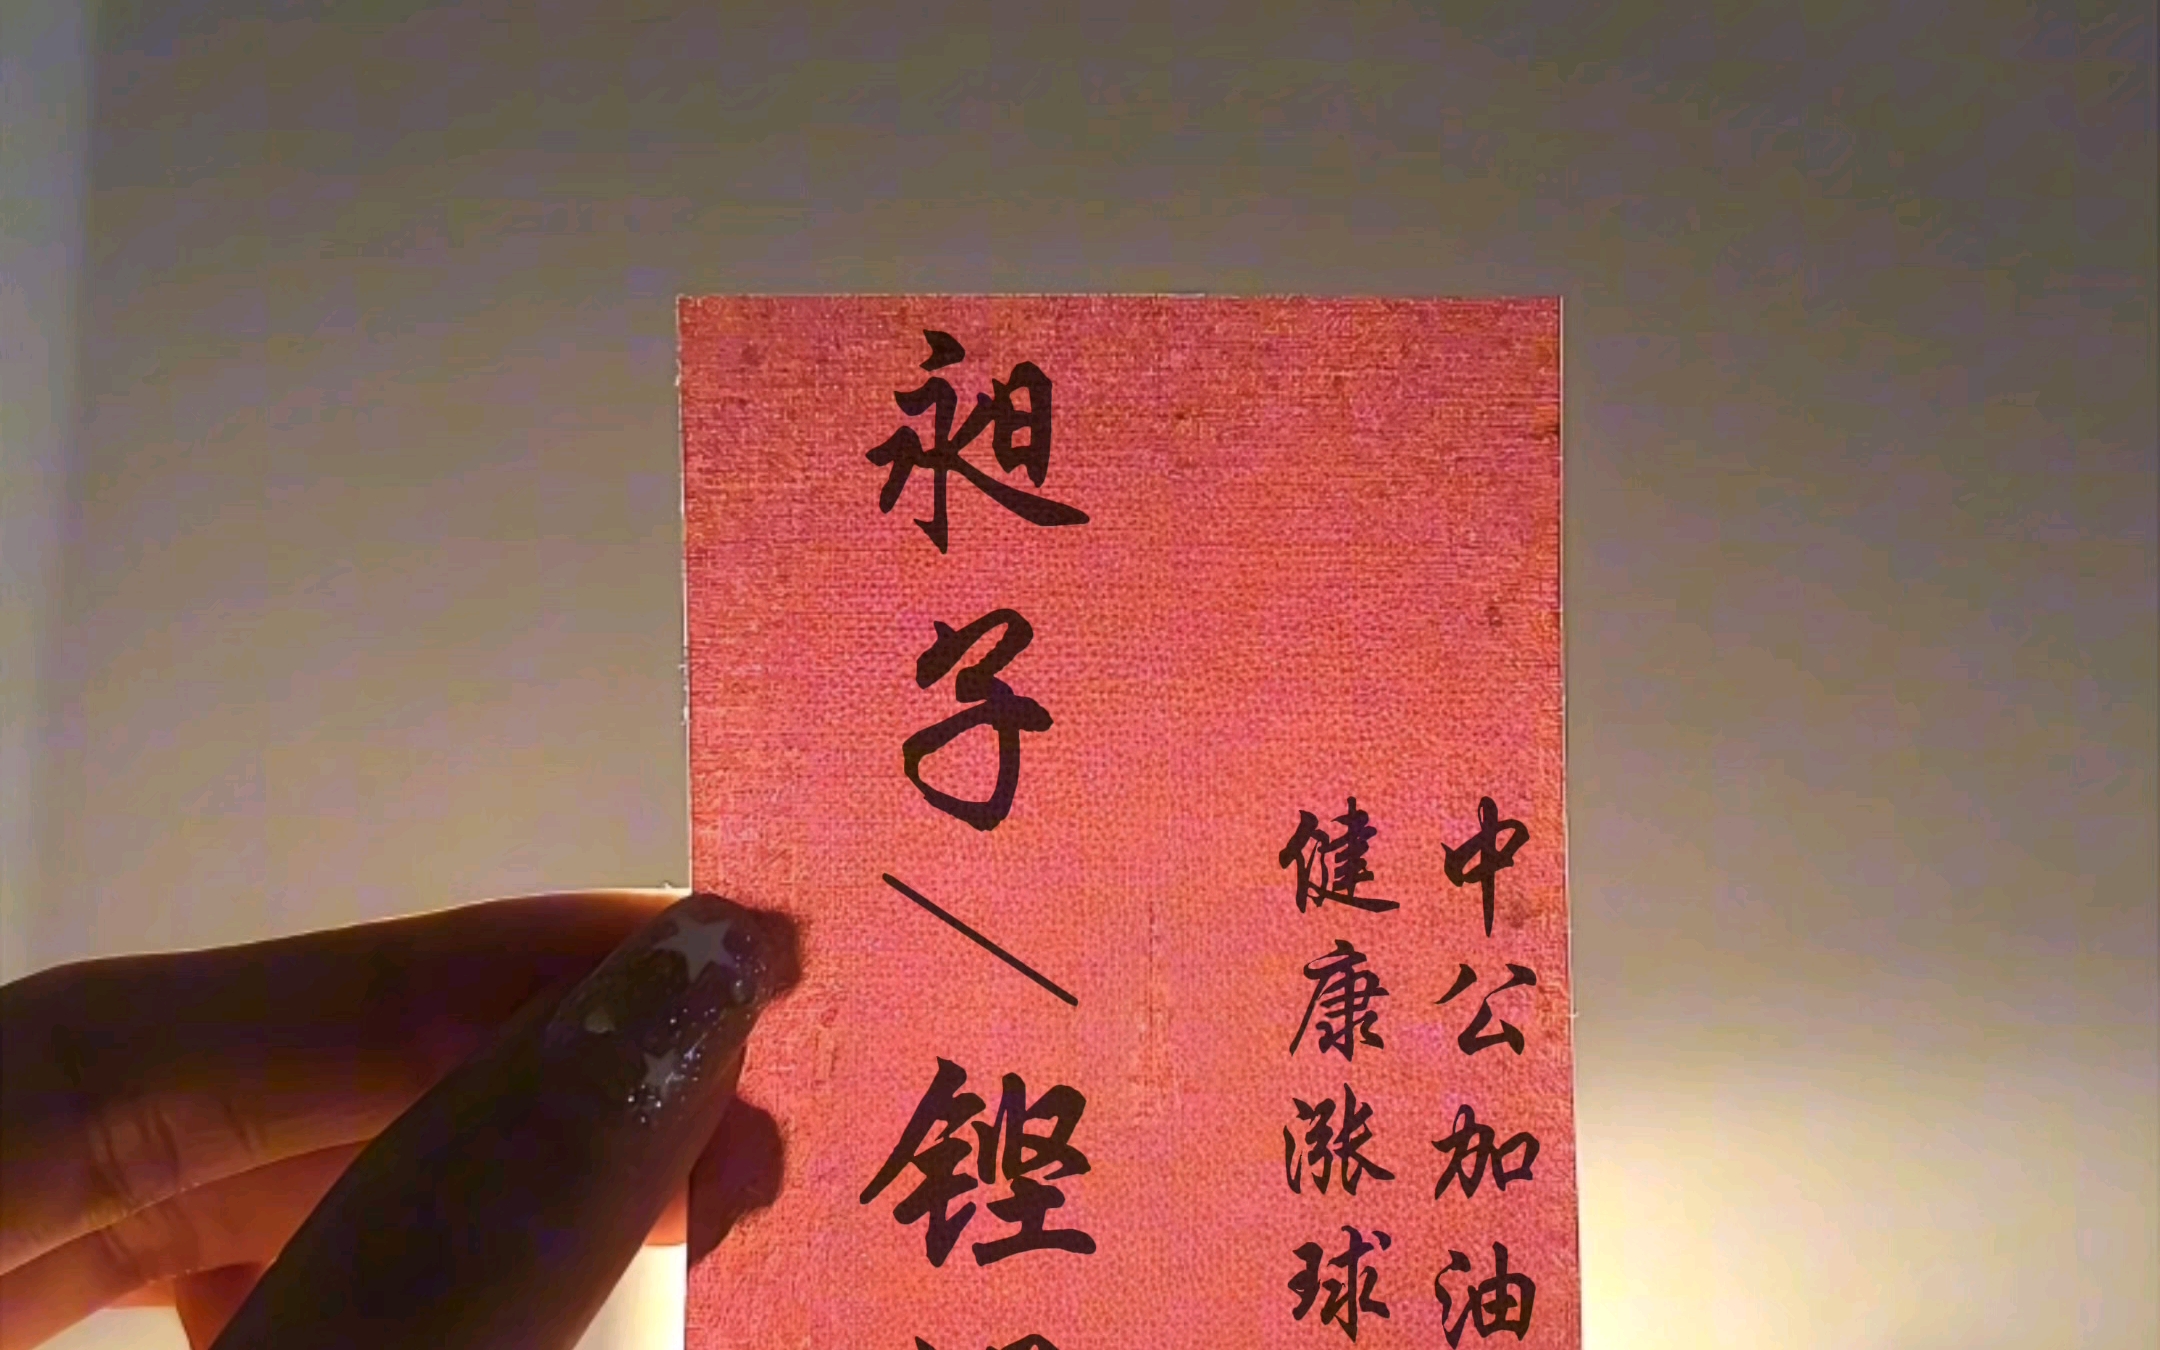 中公加油
健康涨球
昶子\铿